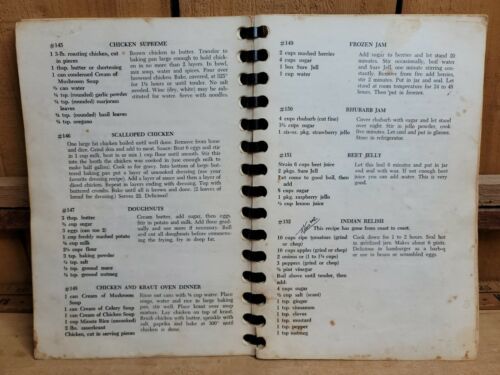 #145 CHICKEN SUPREME
1 3-lb. roasting chicken, cut
in pieces
1 tbsp. butter or shortening
1 can condensed Cream of
Mushroom Soup
¾ can water
⅛ tsp. (rounded) garlic powder
¼ tsp. (rounded) marjoram
leaves
¼ tsp. (rounded) basil leaves
¼ tsp. oregano
Brown chicken in butter. Transfer to
baking pan large enough to hold chick-
en in no more than 2 layers. In bowl,
mix soup, water and spices. Pour over
browned chicken. Bake, covered, at 325°
for 1¼ hours or until tender. No salt
needed. Wine (dry, white) may be sub-
stituted for water. Serve with noodles.
#146 SCALLOPED CHICKEN
One large fat chicken boiled until well done. Remove from bone
and dice. Grind skin and add to meat. Sauce: Beat 6 eggs and stir
in 1 cup milk, beat in 1 cup flour until smooth. Stir this sauce
into the broth the chicken was cooked in (just enough milk to
make half gallon). Cook to a sauce for gravy. Into bottom of large but-
tered baking pan put a layer of unmoked dressing (use your
favorite dressing recipe). Add a layer of sauce and then a layer of
diced chicken. Repeat in layers ending with dressing. Top with
buttered crumbs. Bake until all is brown and done.
#147 DOUGHNUTS
2 tbsp. butter
¾ cup sugar
3 eggs (can use 2)
1 cup freshly mashed potato
¾ cup milk
2½ cups flour
3 tsp. baking powder
½ tsp. salt
½ tsp. ground mace
¼ tsp. ground nutmeg
Cream butter, add sugar, then eggs
Stir in potato and milk. Add flour grad-
ually and use more if necessary. Roll
and cut all doughnuts before commenc-
ing the frying, fry in deep fat.
#148 CHICKEN AND KRAUT OVEN DINNER
1 can Cream of Mushroom
Soup
1 can Cream of Celery Soup
1 can Cream of Chicken Soup
1 cup Minute Rice (uncooked)
2 lbs. sauerkraut
Chicken, cut in serving pieces
Rinse out cans with ¾ cup water. Place
soups, water and rice in large baking
pan, stir well. Place kraut over soup
mixture. Lay chicken on top of kraut.
Brush chicken with butter, sprinkle with
salt, paprika and bake at 300° until
chicken is done.
#149 FROZEN JAM
2 cups mashed berries
4 cups sugar
1 box Sure Jell
1 cup water
Add sugar to berries and let stand 20
minutes. Stir occasionally, boil water
and Sure Jell, one minute stirring con-
stantly. Remove from fire add berries,
stir 2 minutes. Put in jar and seal. Let
stand at room temperature for 24 to 48
hours. Then put in freezer.
#150 RHUBARB JAM
4 cups rhubarb (cut fine)
3½ cups sugar
1 six-oz. pkg. strawberry jello
Cover rhubarb with sugar and let stand
over night. Stir in jello powder, cook-
ing until thick. Put in jars.
Store in refrigerator.
#151 BEET JELLY
Strain 6 cups beet juice
2 pkgs. Sure Jell
Let come to good boil, then
add
8 cups sugar
1 pkg. raspberry jello
½ cup lemon juice
Let this boil 6 minutes and put in jar
and seal with wax. If not enough beet
juice you can add water. This is very
good.
#152 INDIAN RELISH
This recipe has gone from coast to coast.
10 cups ripe tomatoes (grind
or chop)
10 cups apples (grind or chop)
2 onions (1 to 1½ cups)
3 peppers (grind or chop)
¾ pint vinegar
Boil above until tender, then
add:
4 cups sugar
¼ cup salt (scant)
1 tsp. ginger
1 tsp. cinnamon
1 tsp. cloves
1 tsp. mustard
1 tsp. pepper
1 tsp nutmeg
Cook down for 1 to 2 hours. Seal hot
in sterilized jars. Makes about 6 pints.
Delicious in hamburger as a barbq-
ue or in beans or scrambled eggs.